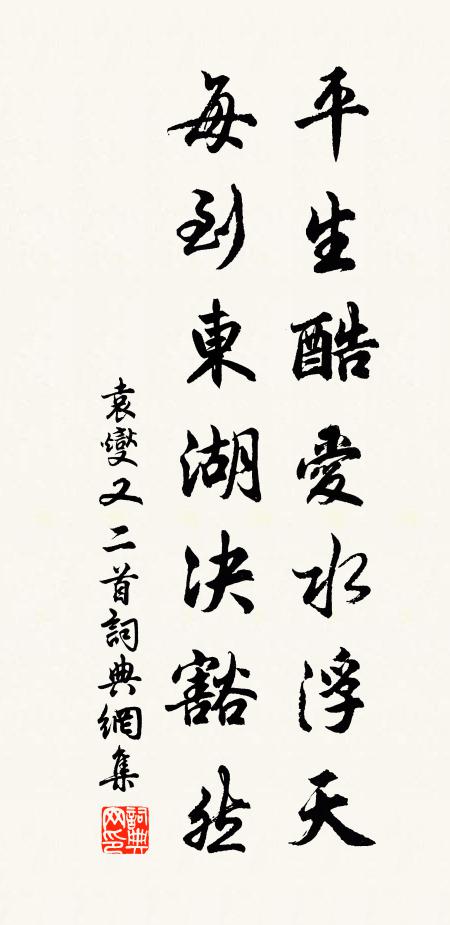 平生酷愛水浮天
每到東湖決豁然
袁燮又二首詞典網集
詞典網印